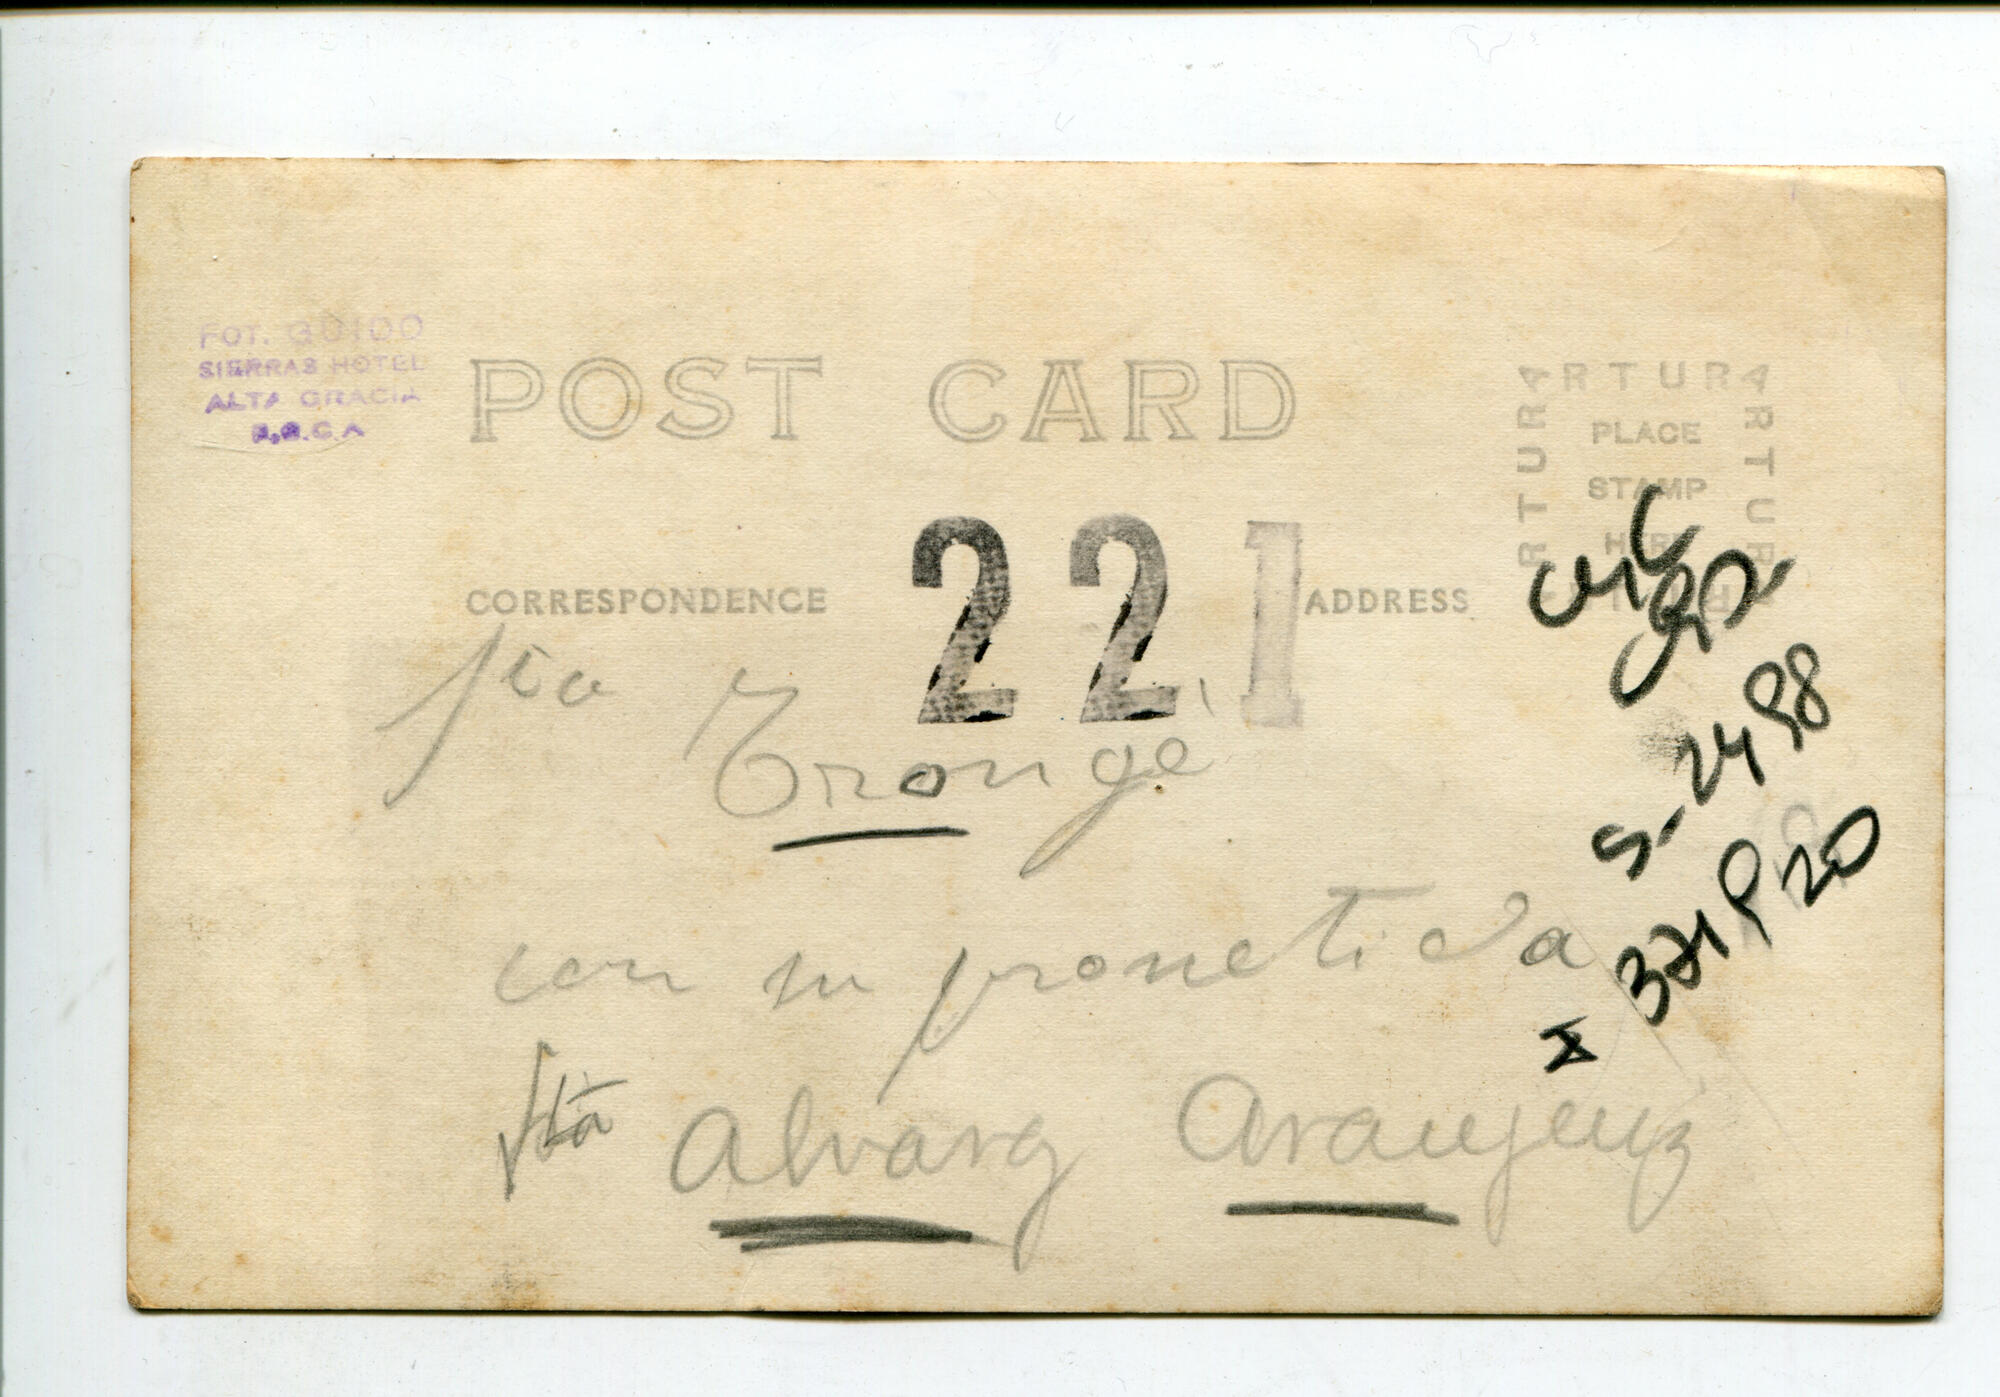 FOT. GUIDO
SIERRAS HOTEL
ALTA GRACIA
F.C.C.A
POST CARD
ARTURA
ARTURA
ARTURA
PLACE
STAMP
HERE
CORRESPONDENCE
221
ADDRESS
Trongé
con su prometida
Sta Alvarez Aranjuez
S-2498
371 P 20